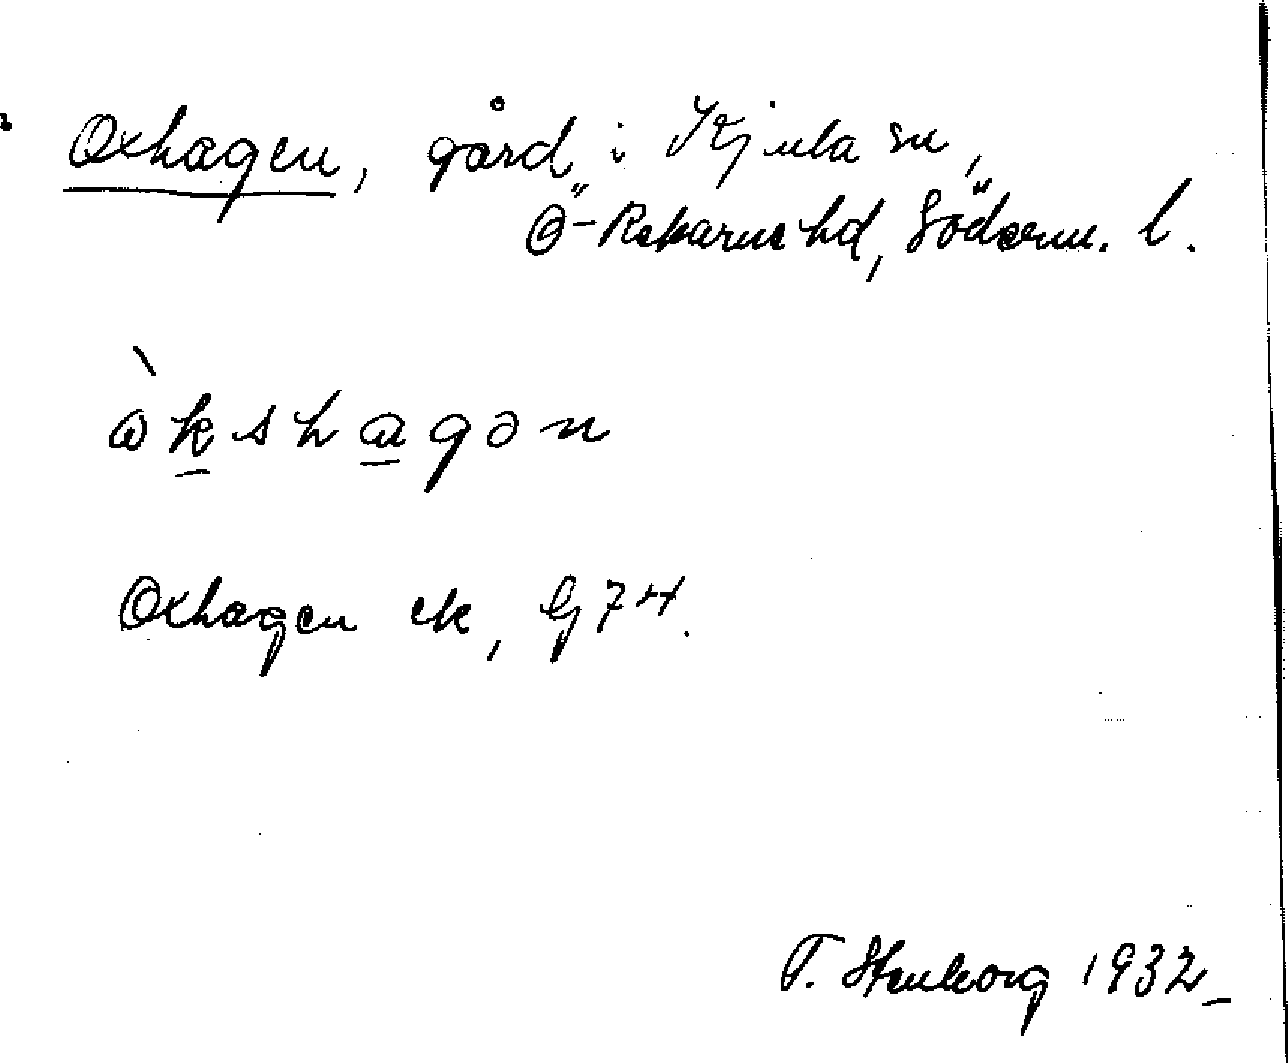 Oxhagen, gård i Kjula sn,
Ö-Rekarne hd, Söderm. l.
ò̀kshagən
Oxhagen ek, Gj 74.
T. Stenborg 1932